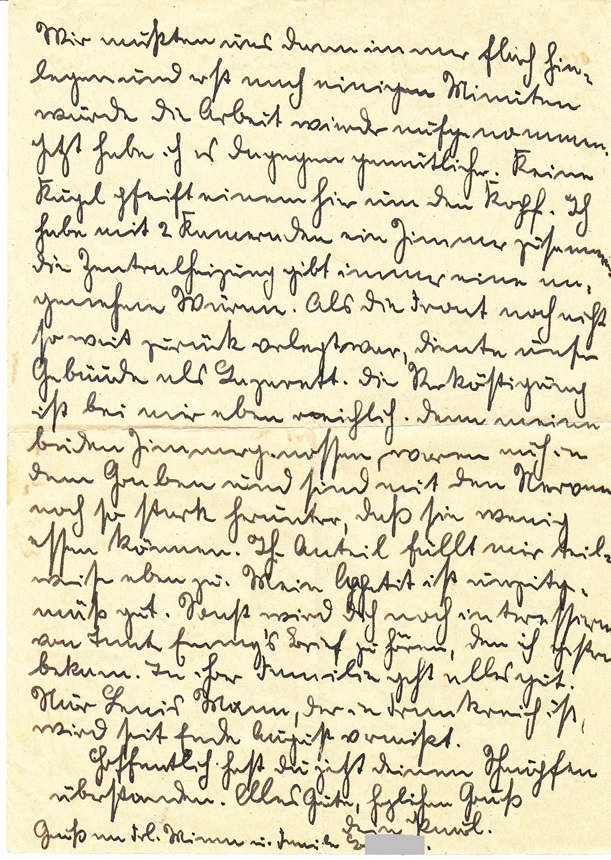 Wir mußten uns dann immer flach hin-
legen und erst nach einigen Minuten
wurde die Arbeit wieder aufgenommen.
Jetzt habe ich es dagegen gemütlicher. Keine
Kugel pfeift einem hier um den Kopf. Ich
habe mit 2 Kameraden ein Zimmer zusammen
die Zentralheizung gibt immer eine an-
genehme Wärme. Als die Front noch nicht
so weit zurück verlegt war, diente unser
Gebäude als Lazarett. Die Beköstigung
ist bei mir eben reichlich. Denn meine
beiden Zimmergenossen, waren auch in
dem Graben und sind mit den Nerven
noch so stark herunter, daß sie wenig
essen können. Ihr Anteil fällt mir teil-
weise eben zu. Mein Appetit ist
gut. Sonst wird Dich noch interessieren
von Tante Emmy's Brief zu hören, den ich gestern
bekam. In ihrer Familie geht alles gut.
Nur Mann, der in Frankreich ist,
wird seit Ende August vermißt.
Hoffentlich hast du jetzt deinen Schnupfen
überstanden. Alles Gute, herzlichen Gruß
dein Karl.
Gruß an Frl. u. Familie